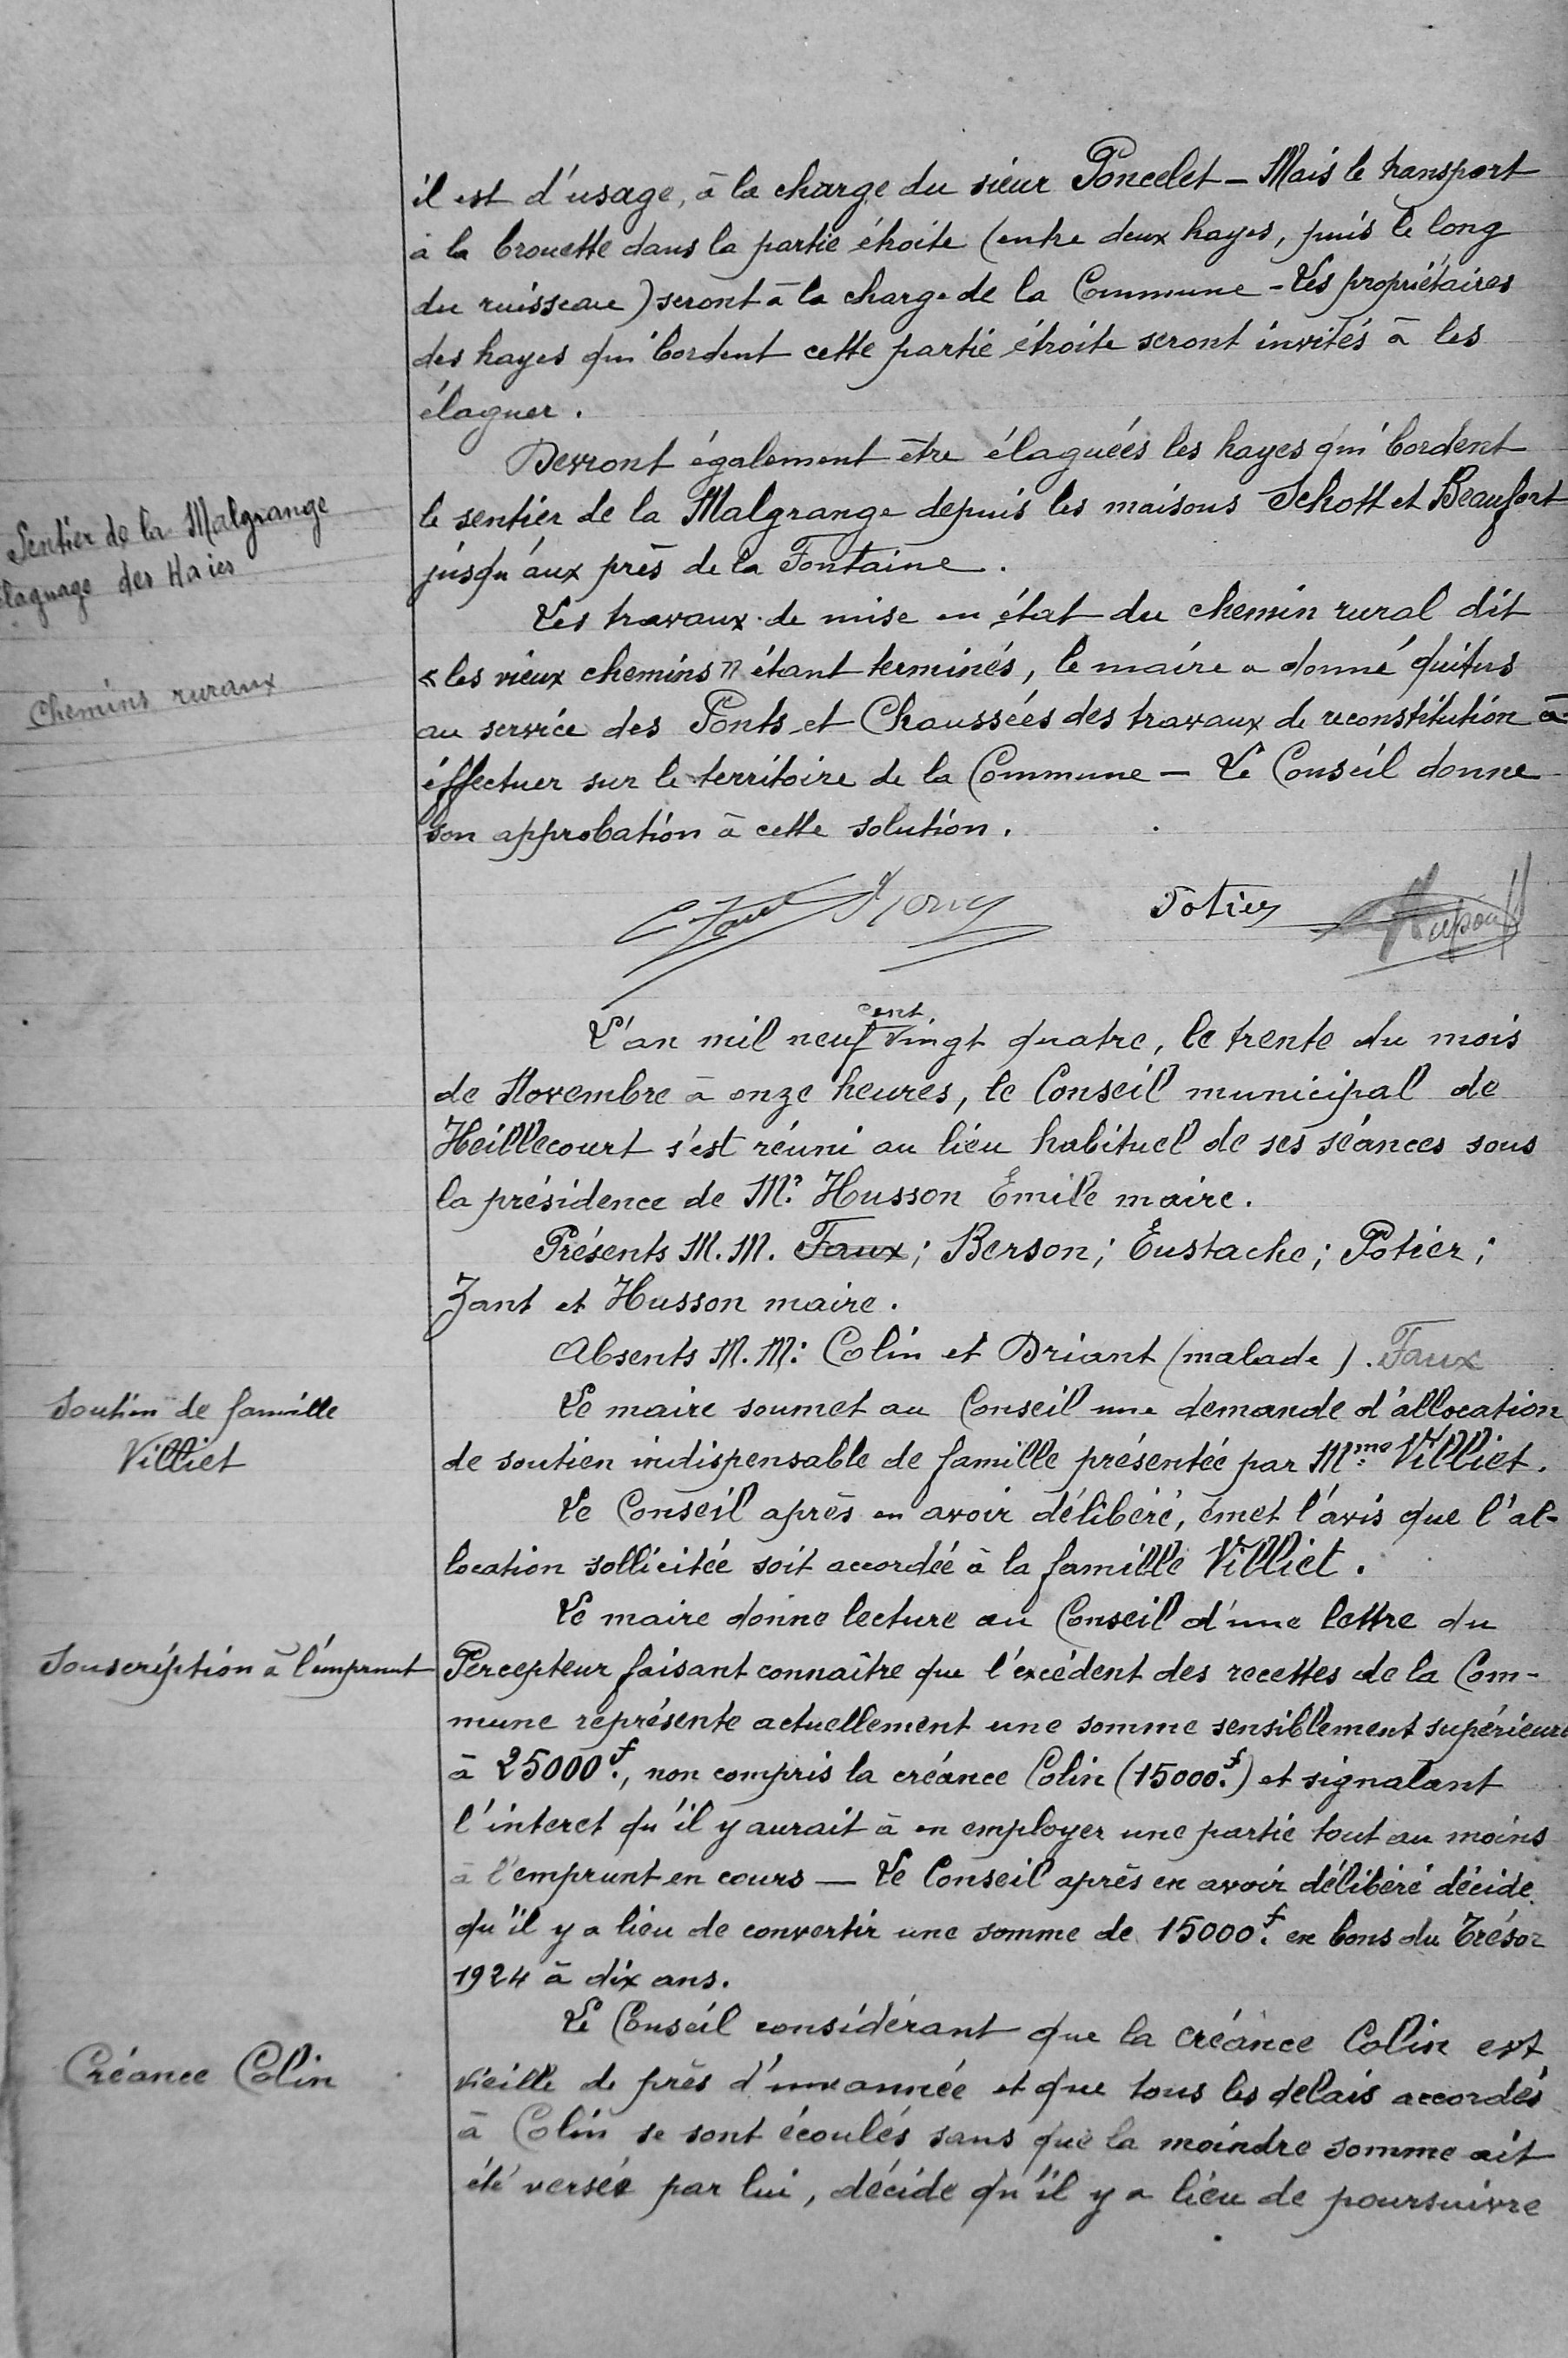 il est d'usage, à la charge du sieur Poncelet – Mais le transport
à la brouette dans la partie étroite (entre deux hayes, puis le long
du ruisseau) seront à la charge de la Commune – Les propriétaires
des hayes qui bordent cette partie étroite seront invités à les
élaguer.
Devront également être élaguées les hayes qui bordent
Sentier de la Malgrange
élaguage des Haies
le sentier de la Malgrange depuis les maisons Schott et Beaufort
jusqu'aux près de la Fontaine.
Les travaux de mise en état du chemin rural dit
Chemins ruraux
« les vieux chemins » étant terminés, le maire a donné quitus
au service des Ponts et Chaussées des travaux de reconstitution à
éffectuer sur le territoire de la Commune – Le Conseil donne
son approbation à cette solution.
Potier
L'an mil neuf cent vingt quatre, le trente du mois
de Novembre à onze heures, le Conseil municipal de
Heillecourt s'est réuni au lieu habituel de ses séances sous
la présidence de Mr. Husson Emile maire.
Présents M.M. Faux; Berson; Eustache; Potier;
Zant et Husson maire.
Absents M.M: Colin et Briant (malade). Faux
Soutien de famille
Villiet
Le maire soumet au Conseil une demande d'allocation
de soutien indispensable de famille présentée par Mme Villiet.
Le Conseil après en avoir délibéré, émet l'avis que l'al-
location sollicitée soit accordée à la famille Villiet.
Le maire donne lecture au Conseil d'une lettre du
Souscription à l'emprunt
Percepteur faisant connaître que l'excédent des recettes de la Com-
mune représente actuellement une somme sensiblement supérieure
à 25000f., non compris la créance Colin (15000.f) et signalant
l'interet qu'il y aurait à en employer une partie tout au moins
à l'emprunt en cours — Le Conseil après en avoir délibéré décide
qu'il y a lieu de convertir une somme de 15000f. en bons du Trésor
1924 à dix ans.
Créance Colin
Le Conseil considérant que la créance Colin est
vieille de près d'une année et que tous les delais accordés
à Colin se sont écoulés sans que la moindre somme ait
été versée par lui, décide qu'il y a lieu de poursuivre